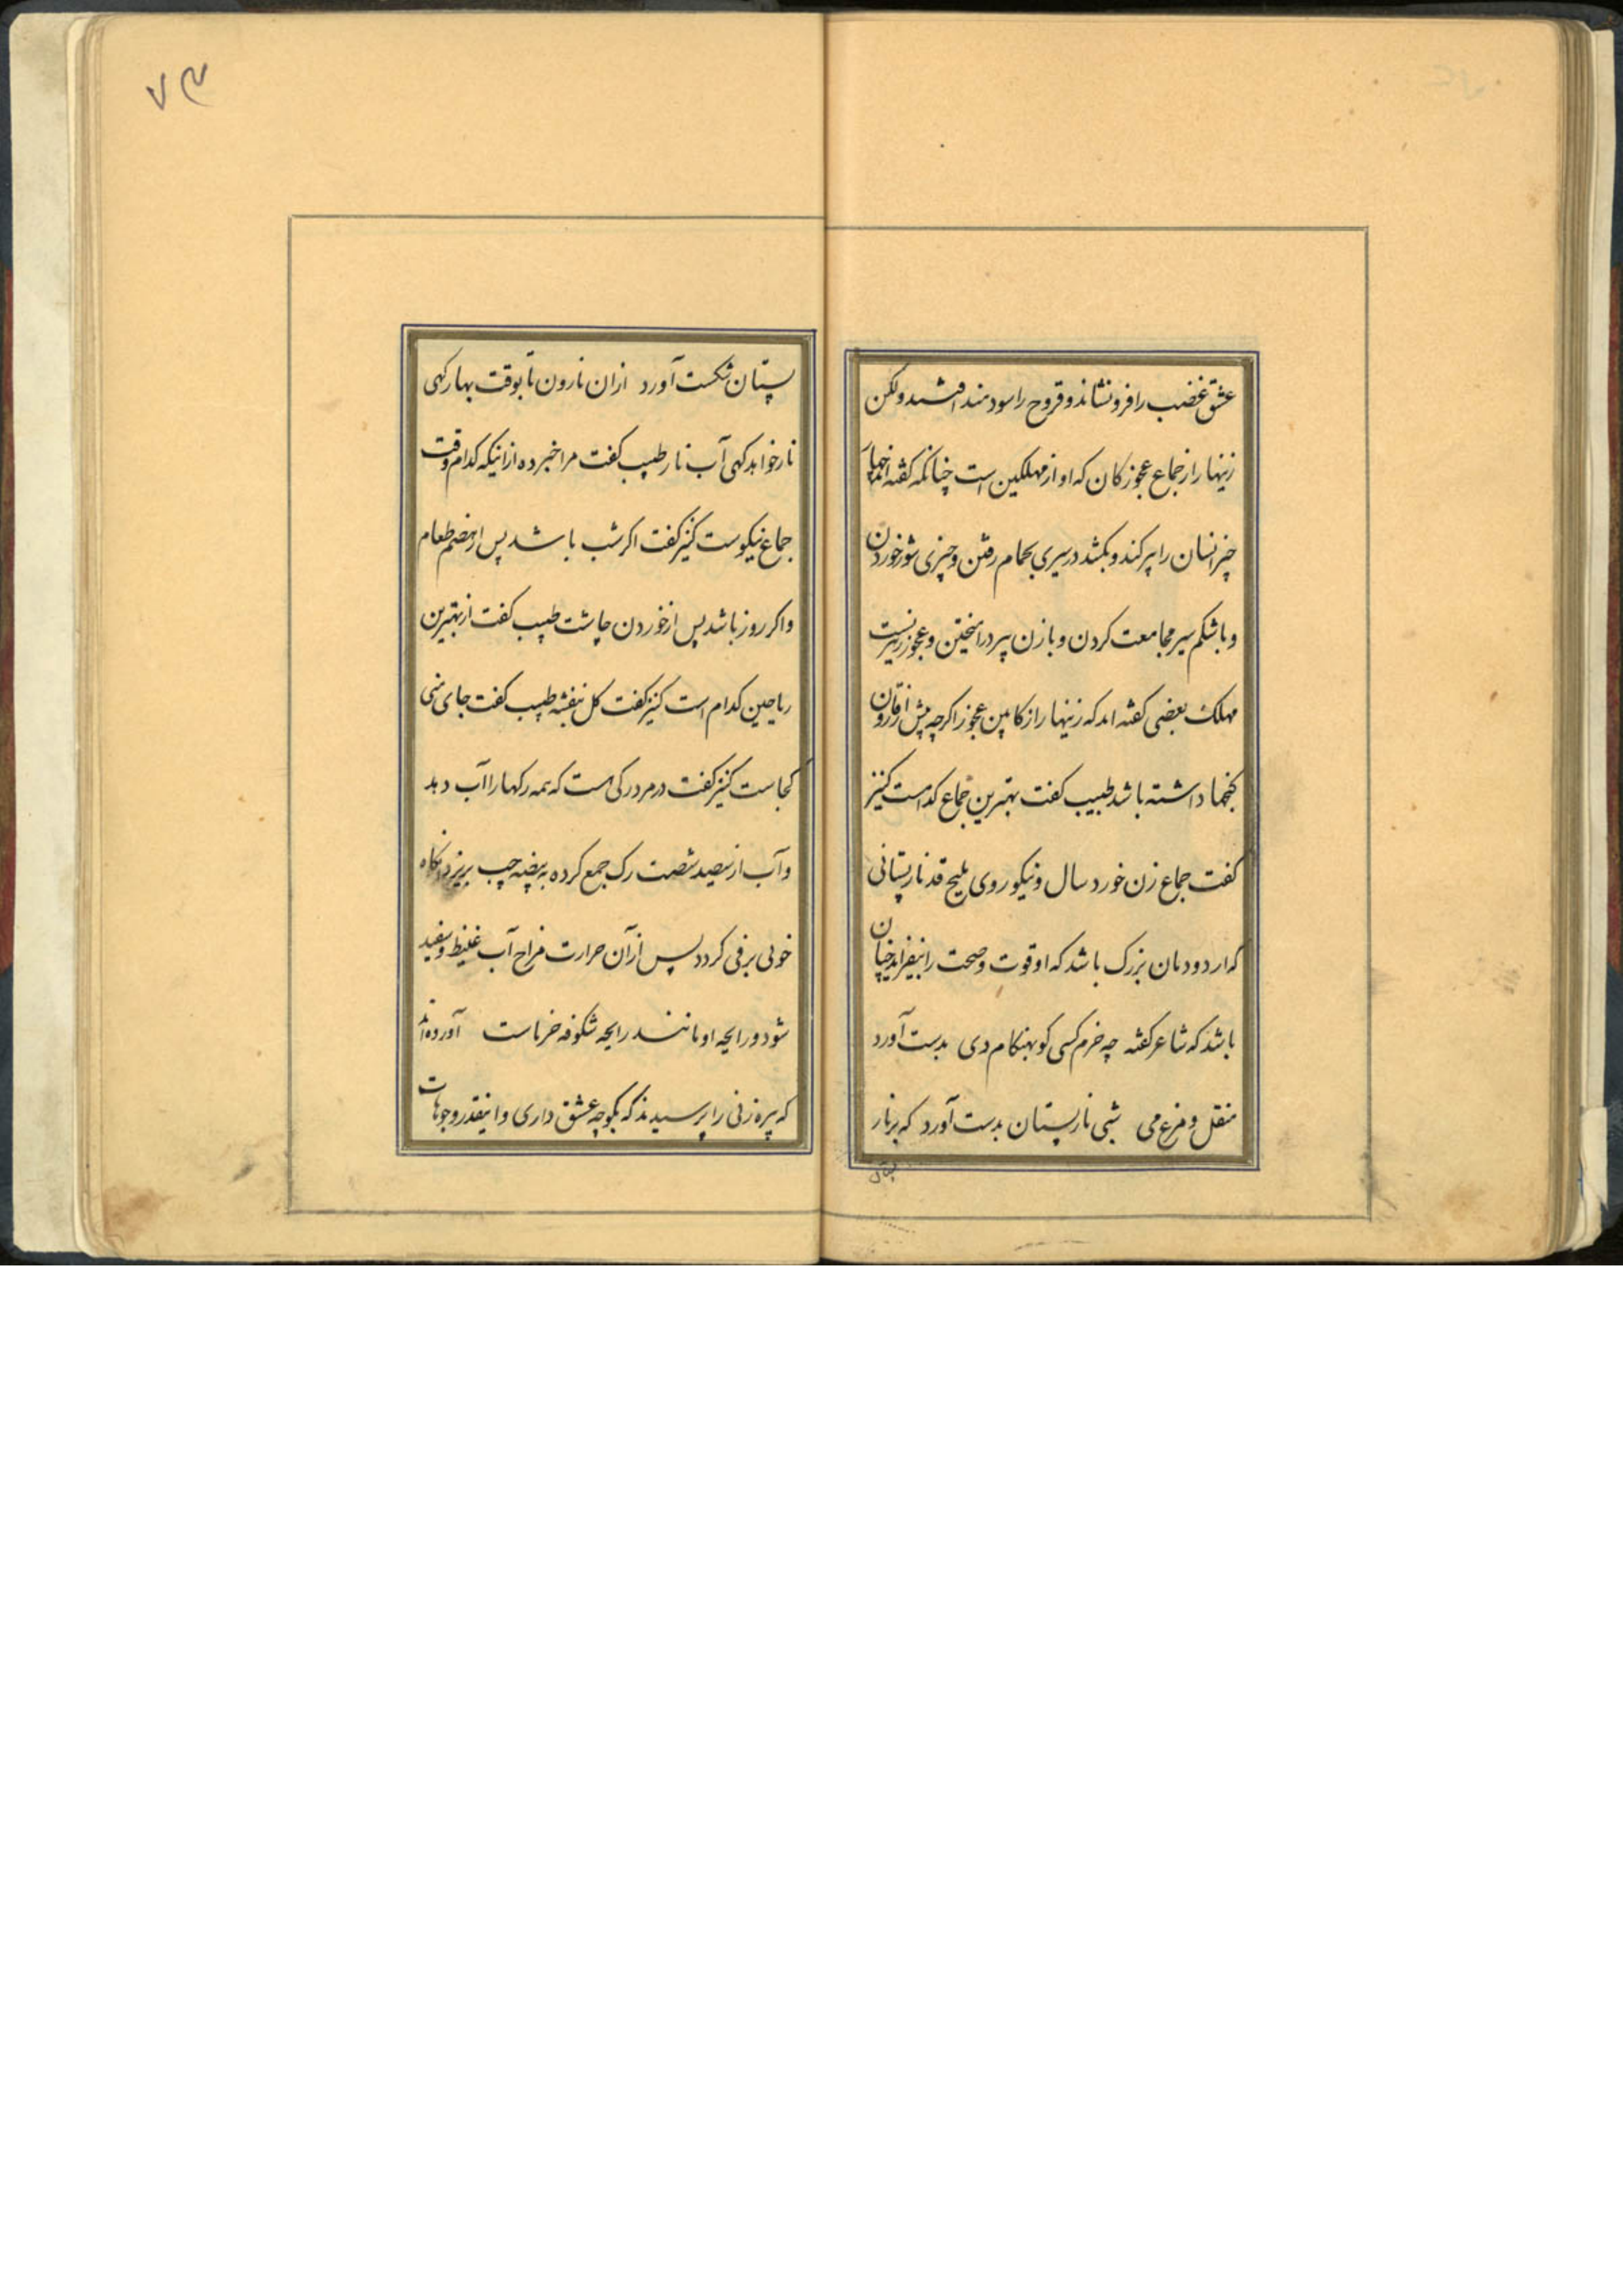 عشق غضب را فرو نشاند و قروح را سودمند افتد ولکن
زینهار از جماع عجوزکان که او از مهلکین است چنانکه گفته‌اند چهار
چیز انسان را پیر کند و بکشد در سیری بحمام رفتن و چیزی شور خوردن
و با شکم سیر مجامعت کردن و با زن پیر درامیختن و عجوز نیز نیست
مهلک بعضی گفته‌اند که زینهار از کابین عجوز اگرچه بیش از قارون
گنجها داشته باشد طبیب گفت بهترین جماع کدامست کنیز
گفت جماع زن خورد سال و نیکو روی ملیح قد نارپستانی
که از دودمان بزرک باشد که او قوت و صحت را بیفزاید چنان
باشد که شاعر گفته چه خرم کسی کو بهنکام دی بدست آورد
منقل و مرغ می بتی نارپستان بدست آورد که بر نار
پستان
۷۴
پستان شکست آورد ازان نارون تا بوقت بهار کهی
نار خواهد کهی آب نار طبیب گفت مرا خبر ده از اینکه کدام وقت
جماع نیکوست کنیز گفت اکر شب باشد پس از هضم طعام
و اکر روز باشد پس از خوردن چاشت طبیب گفت از بهترین
ریاحین کدام است کنیز گفت کل بنفشه طبیب گفت جای منی
کجاست کنیز گفت در مرد رکی است که همه رکها را آب دهد
و آب از سیصد شصت رک جمع کرده به بیضه چپ بریزد انکاه
خونی برفی کردد پس از آن حرارت مزاج آب غلیظ و سفید
شود و رایحه او مانند رایحه شکوفه خرماست آورده‌اند
که پیره زنی را پرسیدند که بکوچه عشق داری و اینقدر وجوهات